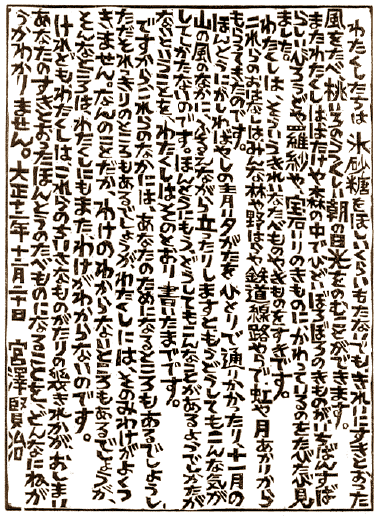 わたくしたちは氷砂糖をほしいくらいもたないでもきれいにすきとおった
風をたべ桃いろのうつくしい朝の日光をのむことができます。
またわたくしははたけや森の中でひどいぼろぼろのきものがいちばんすば
らしいびろうどや羅紗や、宝石いりのきものにかわっているのをたびたび見
ました。
わたくしは、そういうきれいなたべものやきものをすきです。
これらのおはなしはみんな林や野はらや鉄道線路やらで虹や月あかりから
もらってきたのです。
ほんとうにかしわばやしの青い夕がたをひとりで通りかかったり、十一月の
山の風のなかに、ふるえながら立ったりしますともうどうしてもこんな気が
してしかたないのです。ほんとうにもうどうしてもこんなことがあるようでしかたが
ないということを、わたくしはそのとおり書いたまでです。
ですからこれらのなかには、あなたのためになるところもあるでしょうし、
ただそれきりのところもあるでしょうがわたくしには、そのみわけがよくつ
きません。なんのことだかわけのわからないところもあるでしょうが、
そんなところはわたくしにもまたわけがわからないのです。
けれどもわたくしは、これらのちいさなものがたりの幾きれかがおしまい
あなたのすきとおったほんとうのたべものになることを、どんなにねが
うかわかりません。大正十二年十二月二十日 宮澤賢治